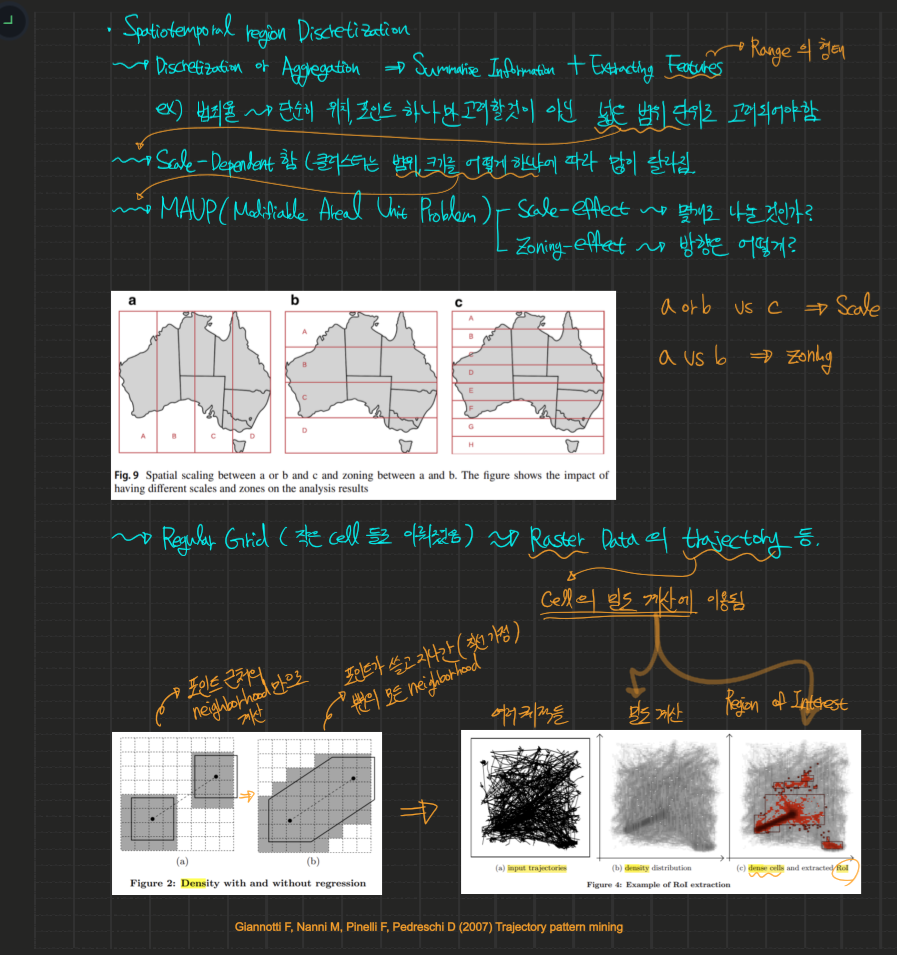 · Spatiotemporal region Discretization
~~> Discretization or Aggregation ⇒ Summarise Information + Extracting Features → Range의 형태
ex) 범죄율 ~> 단순히 위치, 포인트 하나만 고려할것이 아닌 넓은 범위 단위로 고려되어야함
~~> Scale-Dependent 함 (클러스터는 범위, 크기를 어떻게 하냐에 따라 답이 달라짐
~~> MAUP (Modifiable Areal Unit Problem) Scale-effect ~> 몇개로 나눌것인가?
Zoning-effect ~> 방향은 어떻게?
a b c
A B C D
A
B
C
D
A
B
C
D
E
F
G
H
a or b vs c ⇒ Scale
a vs b ⇒ zoning
Fig. 9 Spatial scaling between a or b and c and zoning between a and b. The figure shows the impact of
having different scales and zones on the analysis results
~~> Regular Grid (작은 cell 들로 이뤄졌음) ~> Raster Data의 trajectory 등.
Cell의 밀도 계산에 이용됨
포인트 근처의
neighborhood만으로
계산
포인트가 쓸고 지나간 (직선가정)
뺀 모든 neighborhood
여러 궤적들 밀도 계산 Region of Interest
(a) (b)
Figure 2: Density with and without regression
(a) input trajectories (b) density distribution (c) dense cells and extracted RoI
Figure 4: Example of RoI extraction
Giannotti F, Nanni M, Pinelli F, Pedreschi D (2007) Trajectory pattern mining